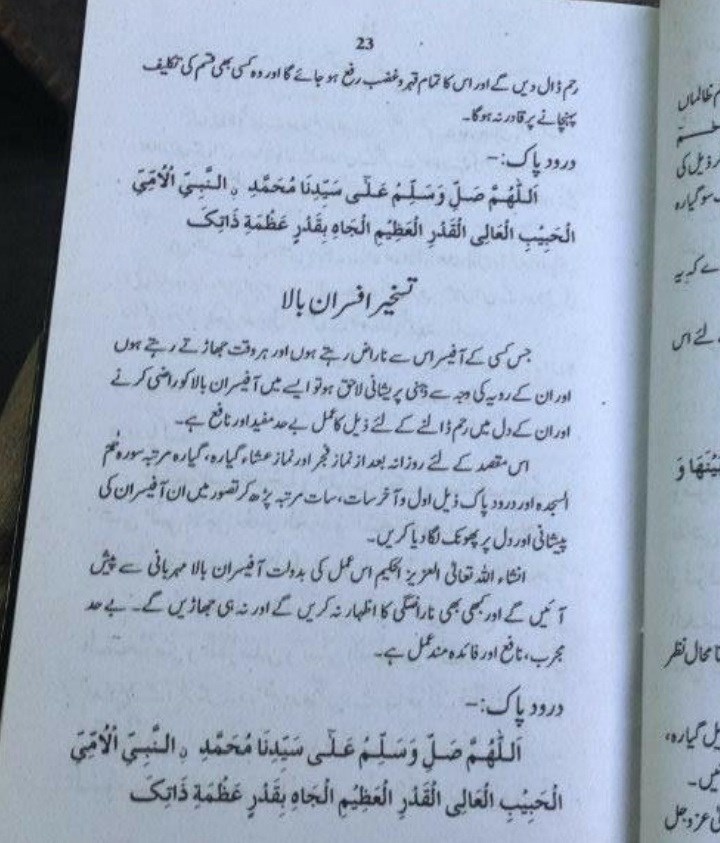 23
رحم ڈال دیں گے اور اس کا تمام قہر و غضب رفع ہو جائے گا اور وہ کسی بھی قسم کی تکلیف
پہنچانے پر قادر نہ ہوگا۔
درود پاک:۔
اَللّٰهُمَّ صَلِّ وَسَلِّمُ عَلٰى سَيِّدِنَا مُحَمَّدِ ۨ النَّبِيِّ الْاُمِّيِّ
الْحَبِيْبِ الْعَالِى الْقَدْرِ الْعَظِيْمِ الْجَاهِ بِقَدْرِ عَظْمَةِ ذَاتِكَ
تسخیر افسران بالا
جس کسی کے آفیسر اس سے ناراض رہتے ہوں اور ہر وقت جھاڑتے رہتے ہوں
اور ان کے رویہ کی وجہ سے ذہنی پریشانی لاحق ہو تو ایسے میں آفیسران بالا کو راضی کرنے
اور ان کے دل میں رحم ڈالنے کے لئے ذیل کا عمل بے حد مفید اور نافع ہے۔
اس مقصد کے لئے روزانہ بعد از نماز فجر اور نماز عشاء گیارہ، گیارہ مرتبہ سورہ حٰم
السجدہ اور درود پاک ذیل اول و آخر سات، سات مرتبہ پڑھ کر تصور میں ان آفیسران کی
پیشانی اور دل پر پھونک لگا دیا کریں۔
انشاء اللہ تعالیٰ العزیز الحکیم اس عمل کی بدولت آفیسران بالا مہربانی سے پیش
آئیں گے اور کبھی بھی ناراضگی کا اظہار نہ کریں گے اور نہ ہی جھاڑیں گے۔ بے حد
مجرب، نافع اور فائدہ مند عمل ہے۔
درود پاک:۔
اَللّٰهُمَّ صَلِّ وَسَلِّمُ عَلٰى سَيِّدِنَا مُحَمَّدِ ۨ النَّبِيِّ الْاُمِّيِّ
الْحَبِيْبِ الْعَالِى الْقَدْرِ الْعَظِيْمِ الْجَاهِ بِقَدْرِ عَظْمَةِ ذَاتِكَ
ظالماں
ذیل کی
سو گیارہ
کہ یہ
لئے اس
محال نظر
گیارہ،
عز و جل